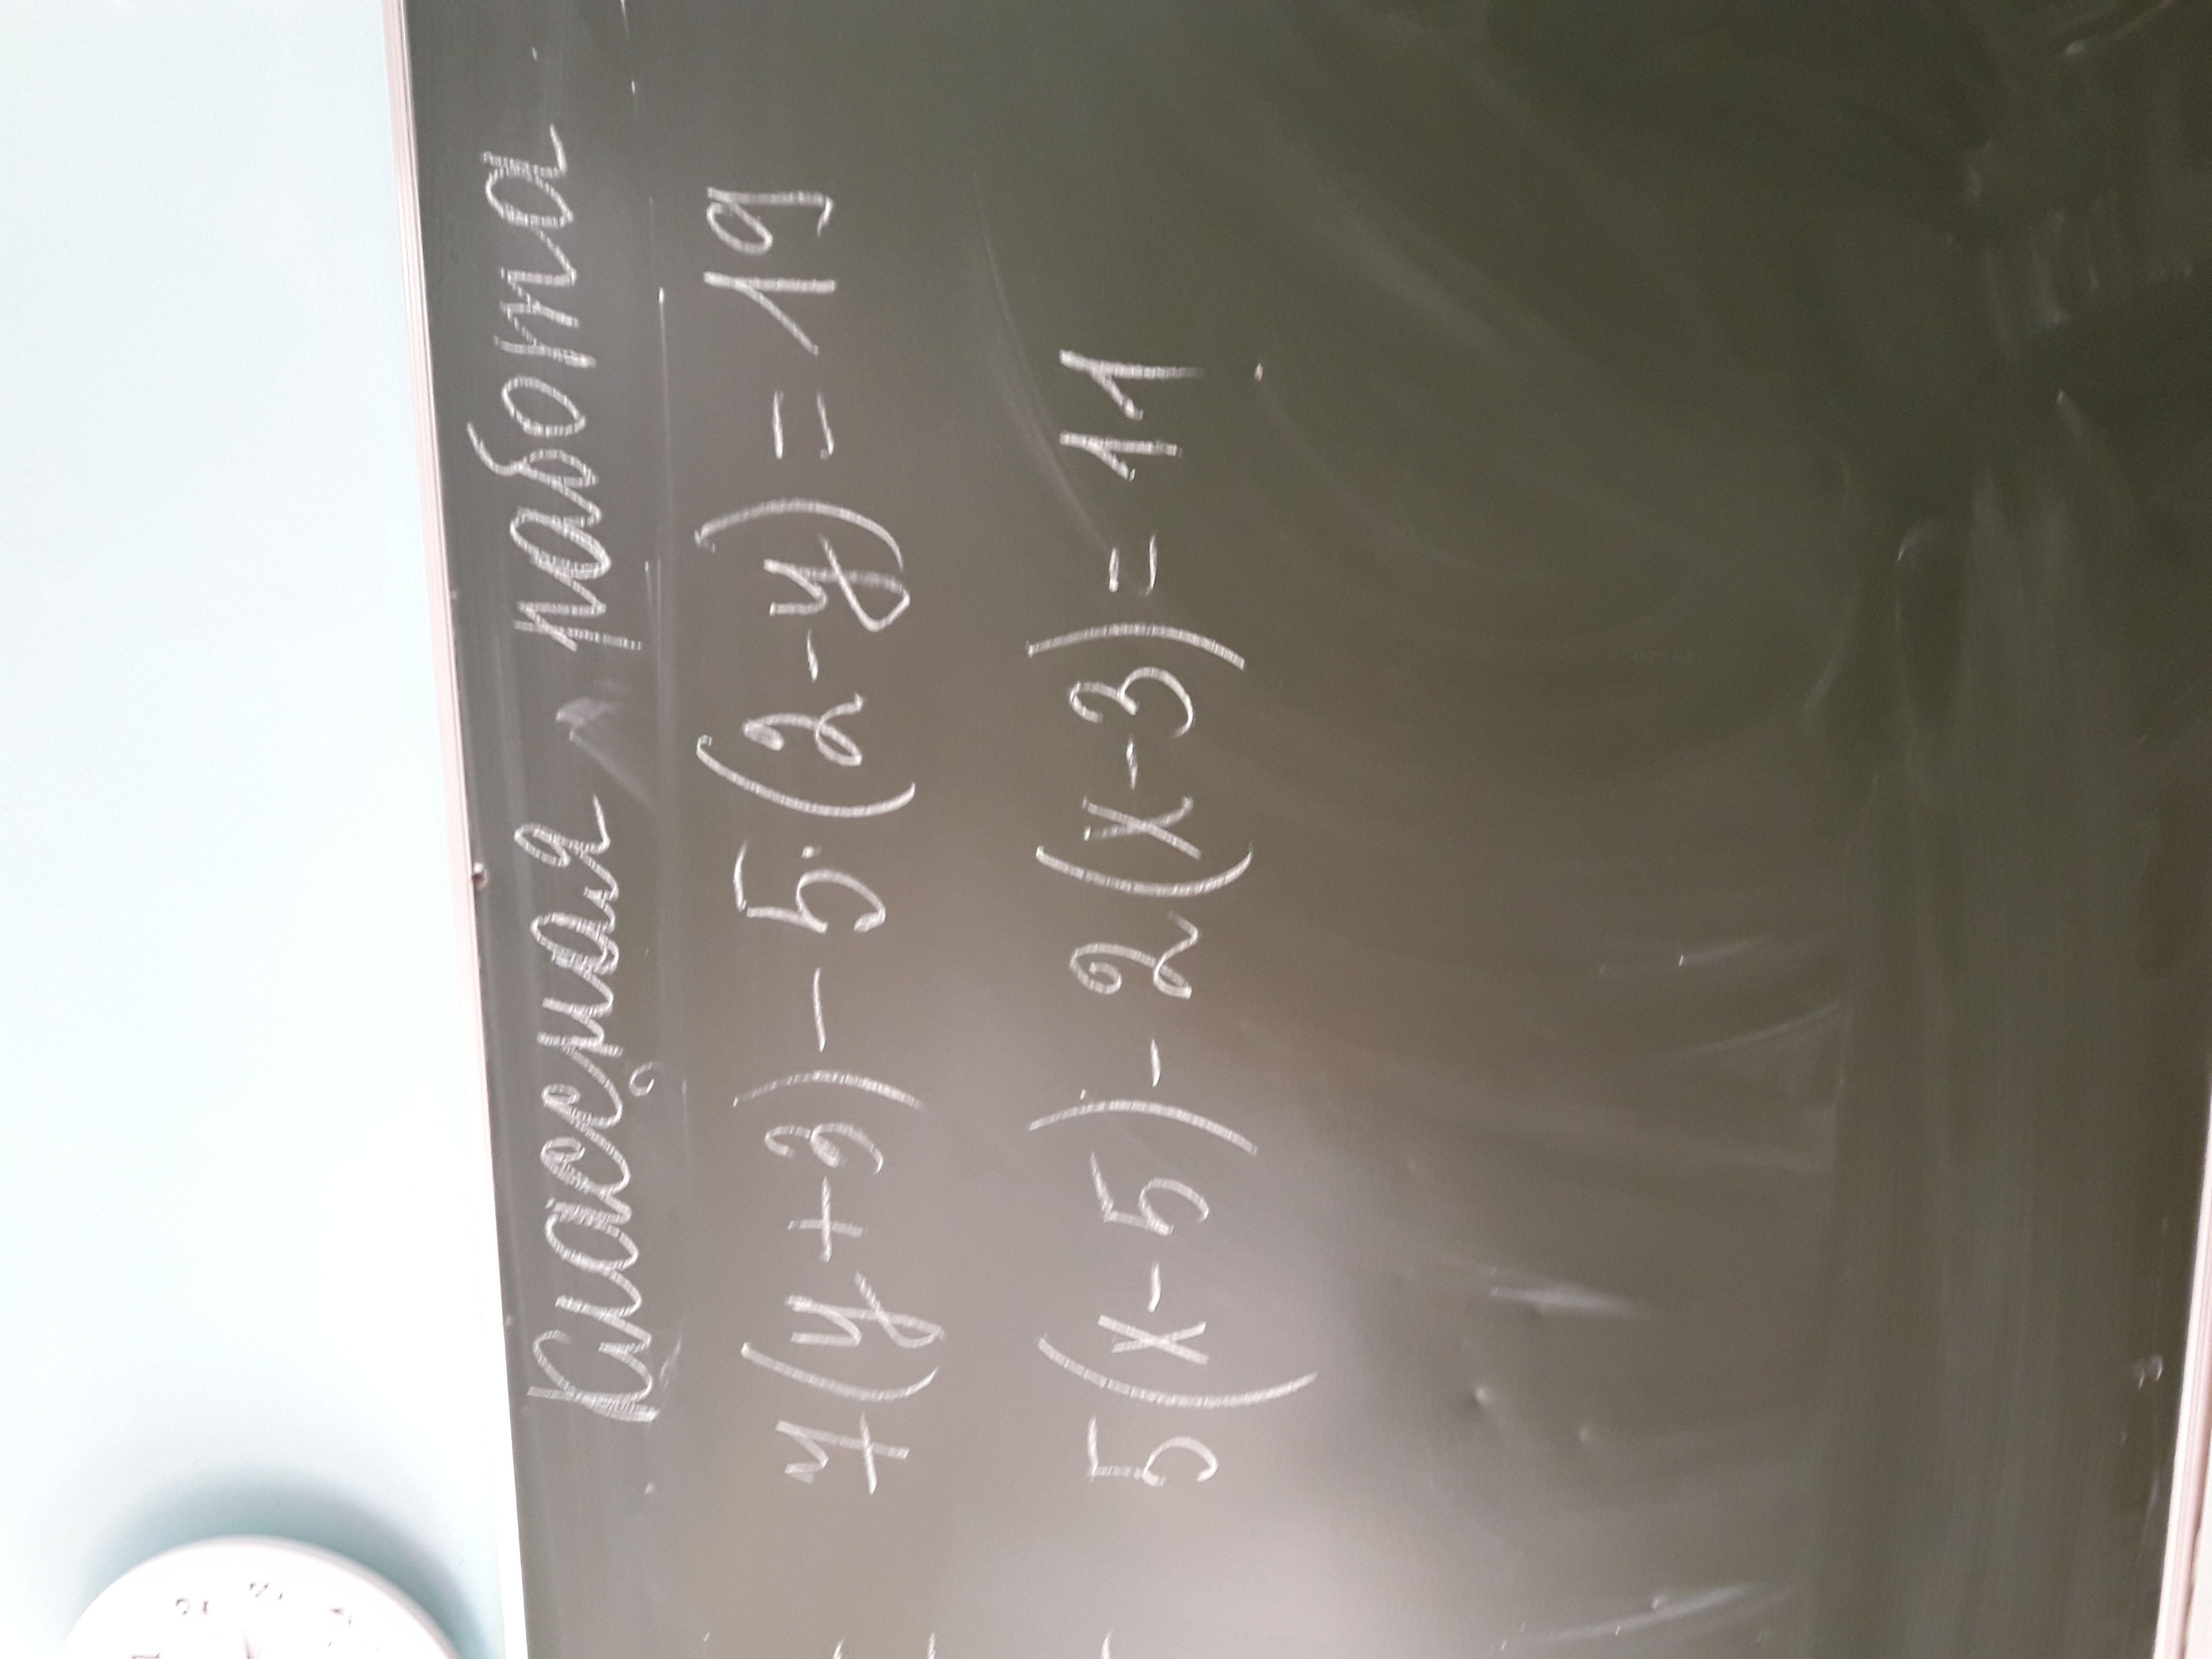 Классная работа
7(y+3)-5·(2-y)=19
5(x-5)-2(x-3)=11